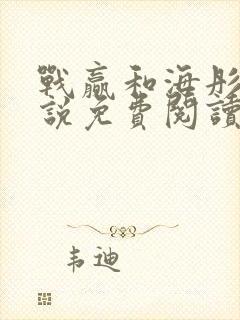 戰贏和海彤
說免費閱讀
韦迪